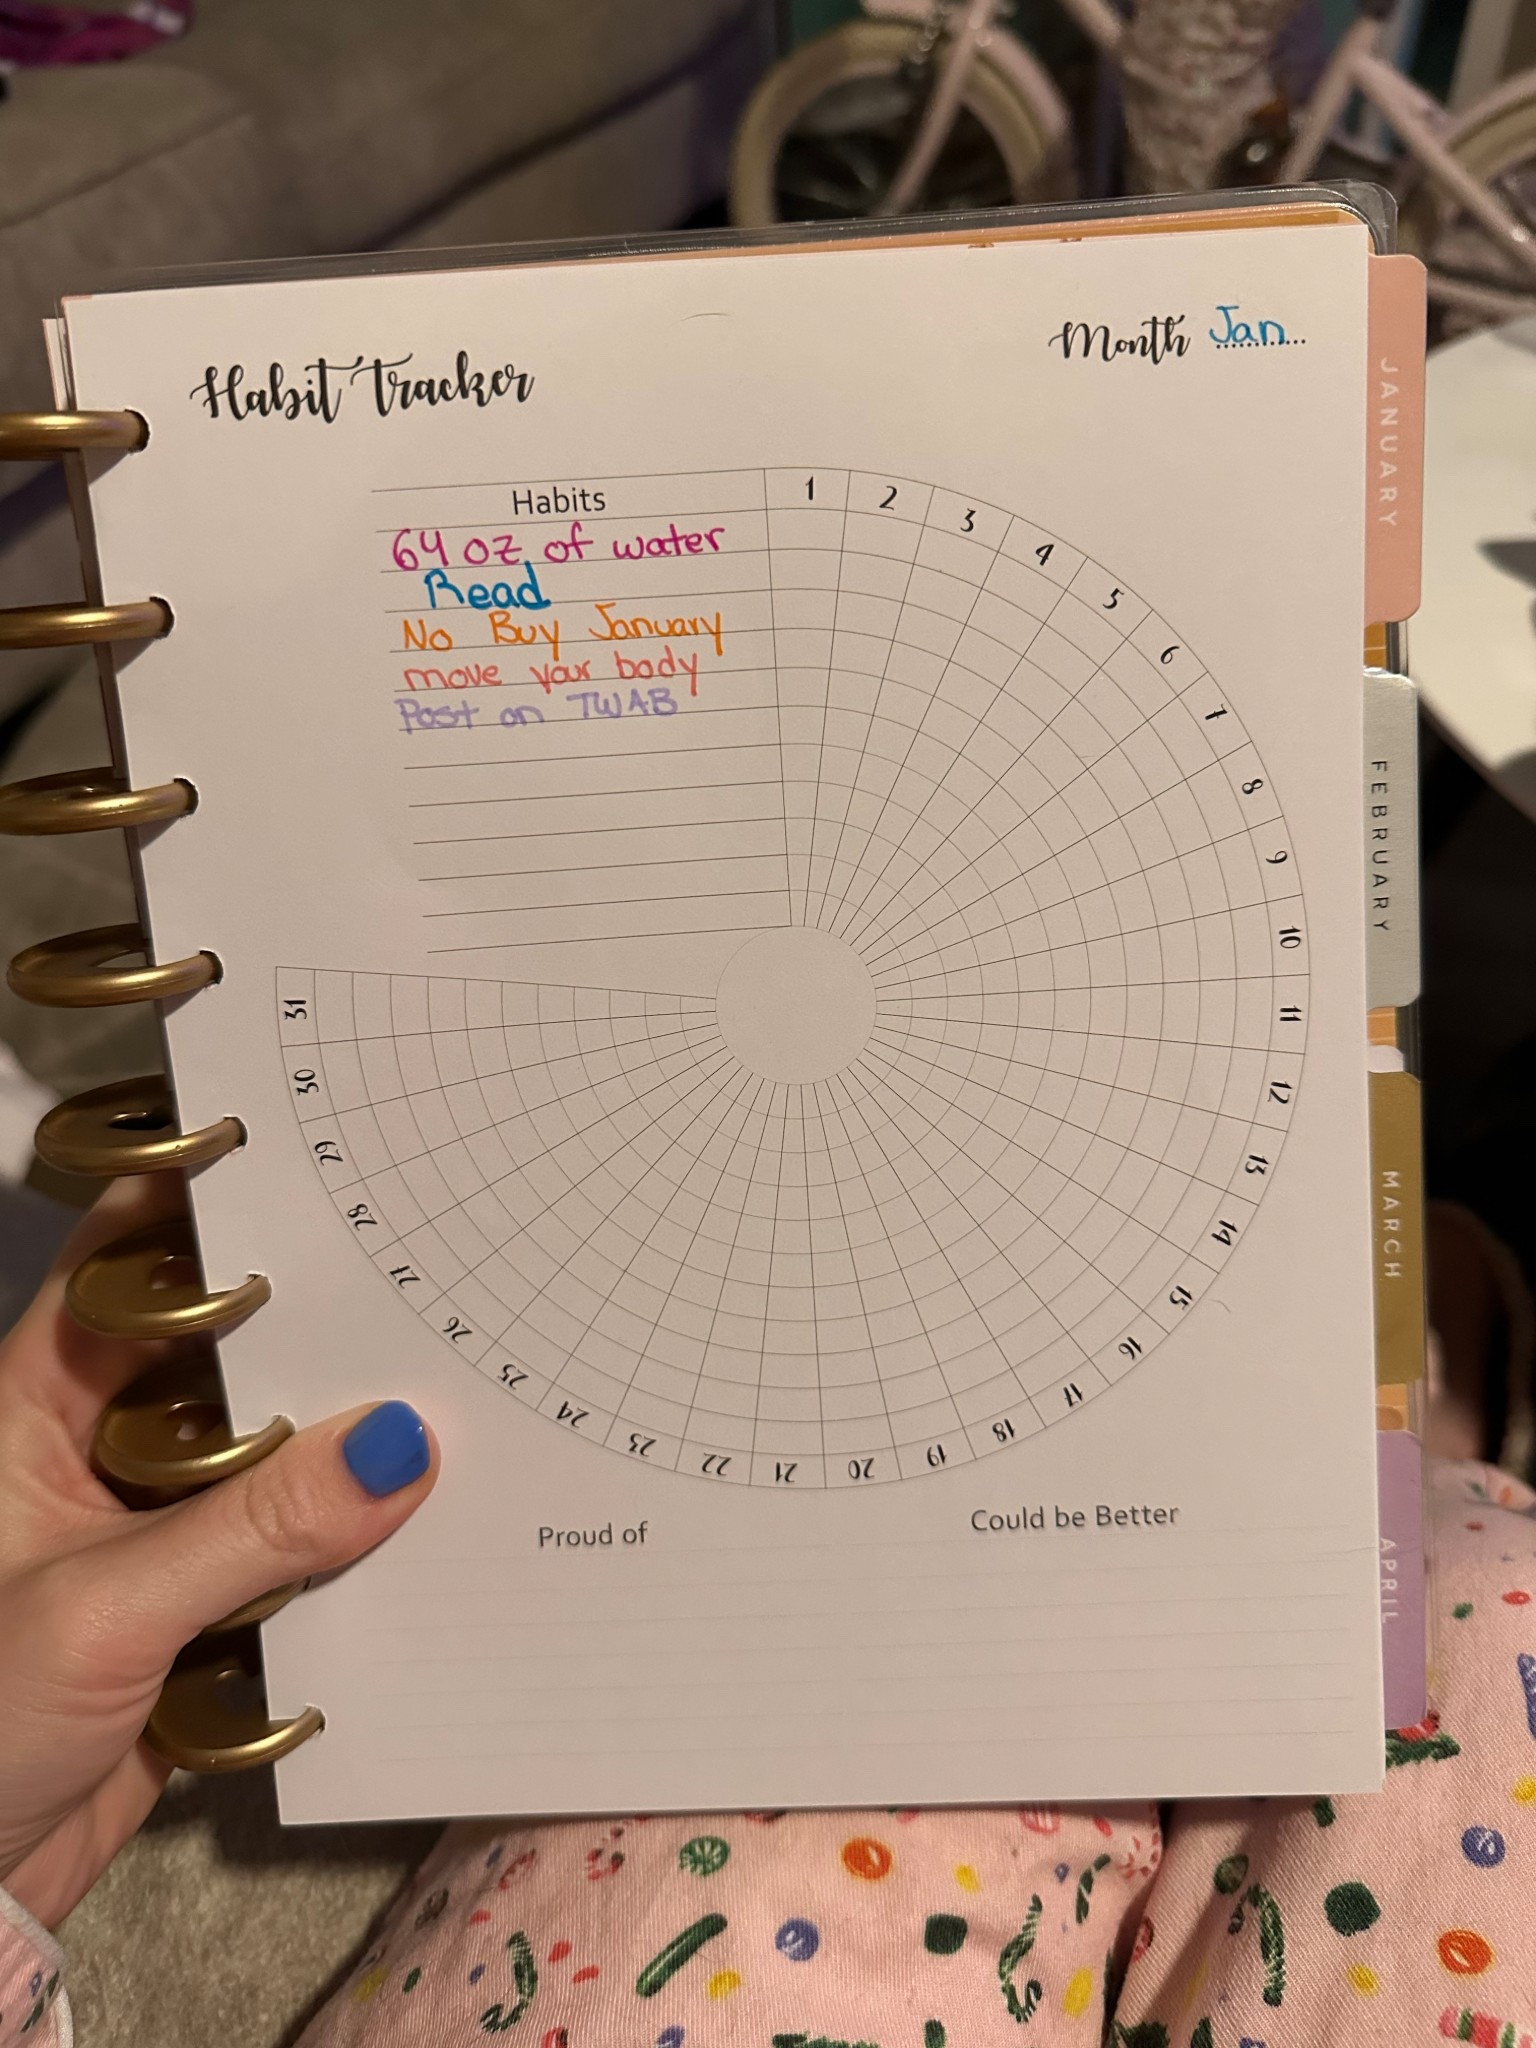 Habit Tracker
Month Jan
Habits
64 oz of water
Read
No Buy January
move your body
Post on TWAB
1
2
3
4
5
6
7
8
9
10
11
12
13
14
15
16
17
18
19
20
21
22
23
24
25
26
27
28
29
30
31
Proud of
Could be Better
JANUARY
FEBRUARY
MARCH
APRIL